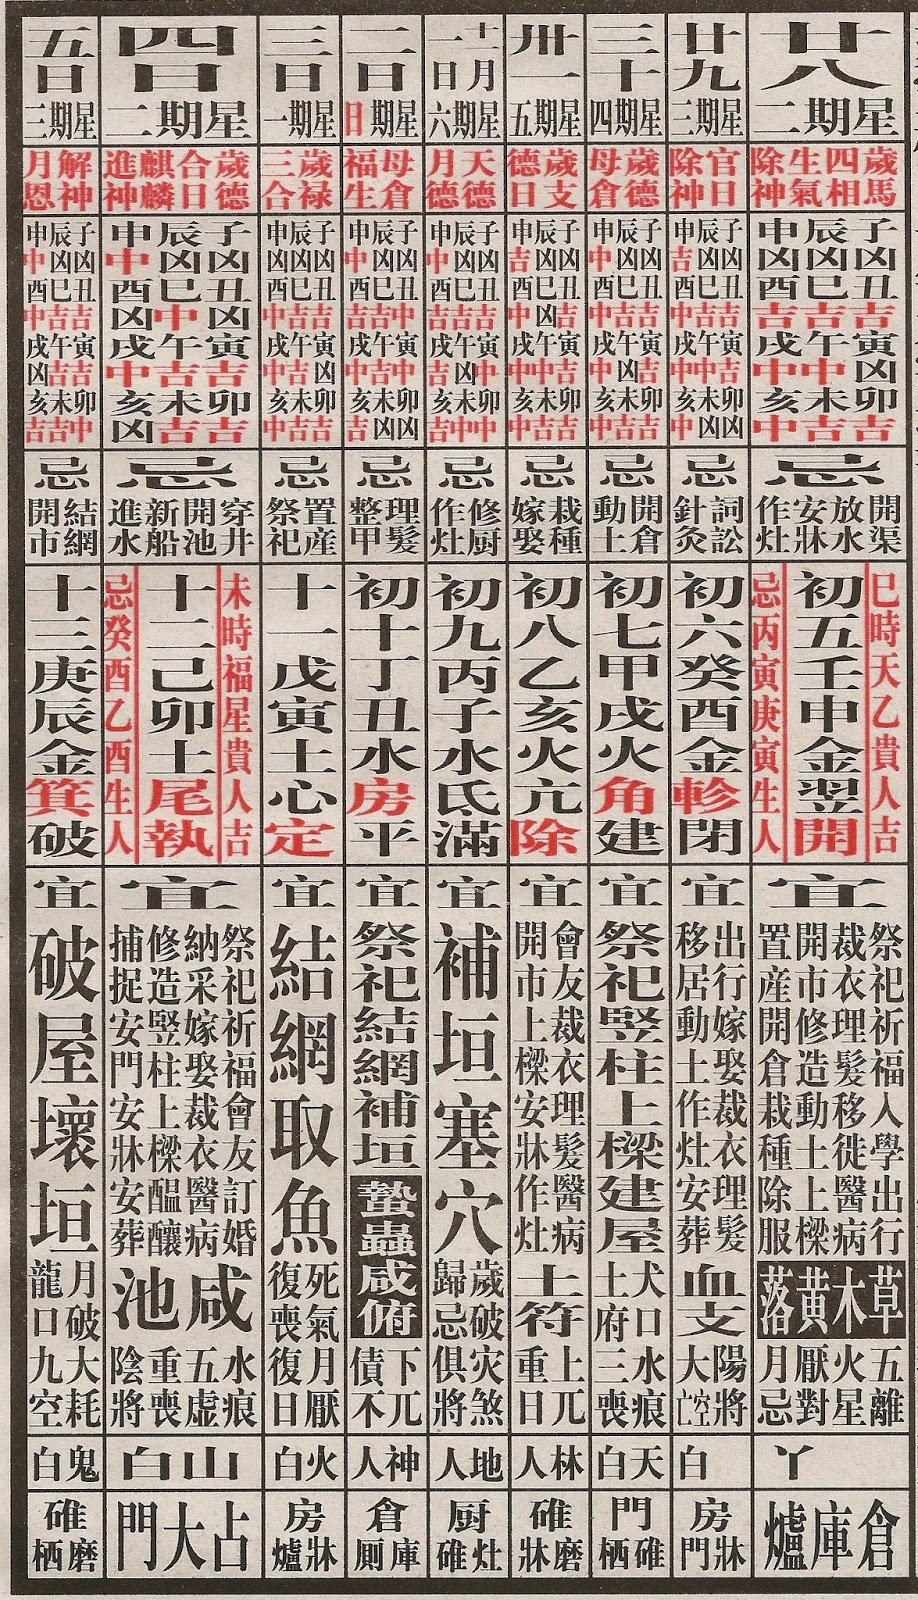 廿八
星期二
歲馬
四相
生氣
除神
子凶丑吉寅凶卯吉
辰凶巳吉午中未吉
申凶酉吉戌中亥中
忌
開渠
放水
安牀
作灶
巳時天乙貴人吉
初五壬申金翌開
忌丙寅庚寅生人
宜
祭祀祈福入學出行
裁衣理髮移徙醫病
開市修造動土上樑
置產開倉栽種除服
草木黃落
五離
火星
厭對
月忌
丫
倉庫爐
廿九
星期三
官日
除神
子凶丑吉寅中卯凶
辰凶巳吉午中未凶
申吉酉中戌中亥中
忌
詞訟
針灸
初六癸酉金軫閉
宜
出行嫁娶裁衣理髮
移居動土作灶安葬
血支
陽將
大空亡
白
房牀門
三十
星期四
歲德
母倉
子凶丑吉寅吉卯吉
辰凶巳吉午凶未吉
申中酉中戌中亥中
忌
開倉
動土
初七甲戌火角建
宜
祭祀豎柱上樑建屋
犬口
土府
水痕
三喪
天白
門碓栖
卅一
星期五
歲支
德日
子凶丑吉寅中卯吉
辰凶巳凶午中未吉
申吉酉中戌中亥中
忌
栽種
嫁娶
初八乙亥火亢除
宜
會友裁衣理髮醫病
開市上樑安牀作灶
土符
上兀
重日
林人
碓磨牀
十一月
一日
星期六
天德
月德
子凶丑吉寅中卯中
辰凶巳吉午凶未中
申中酉吉戌吉亥吉
忌
修厨
作灶
初九丙子水氐滿
宜
補垣塞穴
歲破
歸忌
災煞
俱將
地人
厨灶碓
二日
星期日
母倉
福生
子凶丑中寅中卯凶
辰凶巳吉午吉未凶
申中酉吉戌中亥吉
忌
理髮
整甲
初十丁丑水房平
宜
祭祀結網補垣
蟄蟲咸俯
下兀
債不
神人
倉庫厠
三日
星期一
歲祿
三合
子凶丑吉寅凶卯吉
辰凶巳吉午吉未吉
申凶酉中戌中亥中
忌
置產
祭祀
十一戊寅土心定
宜
結網取魚
死氣
復喪
月厭
復日
火白
房牀爐
四日
星期二
歲德
合日
麒麟
進神
子凶丑凶寅吉卯吉
辰凶巳中午吉未吉
申中酉凶戌中亥凶
忌
穿井
開池
新船
進水
未時福星貴人吉
十二己卯土尾執
忌癸酉乙酉生人
宜
祭祀祈福會友訂婚
納采嫁娶裁衣醫病
修造豎柱上樑醞釀
捕捉安門安牀安葬
咸池
水痕
五虛
重喪
陰將
山白
占大門
五日
星期三
解神
月恩
子凶丑吉寅吉卯中
辰凶巳吉午吉未吉
申中酉中戌凶亥吉
忌
結網
開市
十三庚辰金箕破
宜
破屋壞垣
月破
龍口
大耗
九空
鬼白
碓磨栖